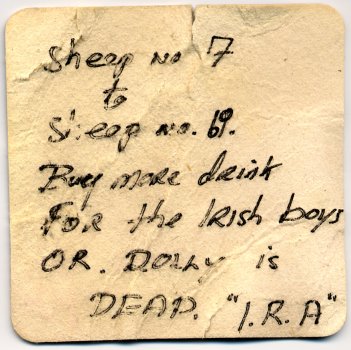 Sheep no 7
to
Sheep no. 69.
Buy more drink
For the Irish boys
OR. DOLLY is
DEAD. "I.R.A"